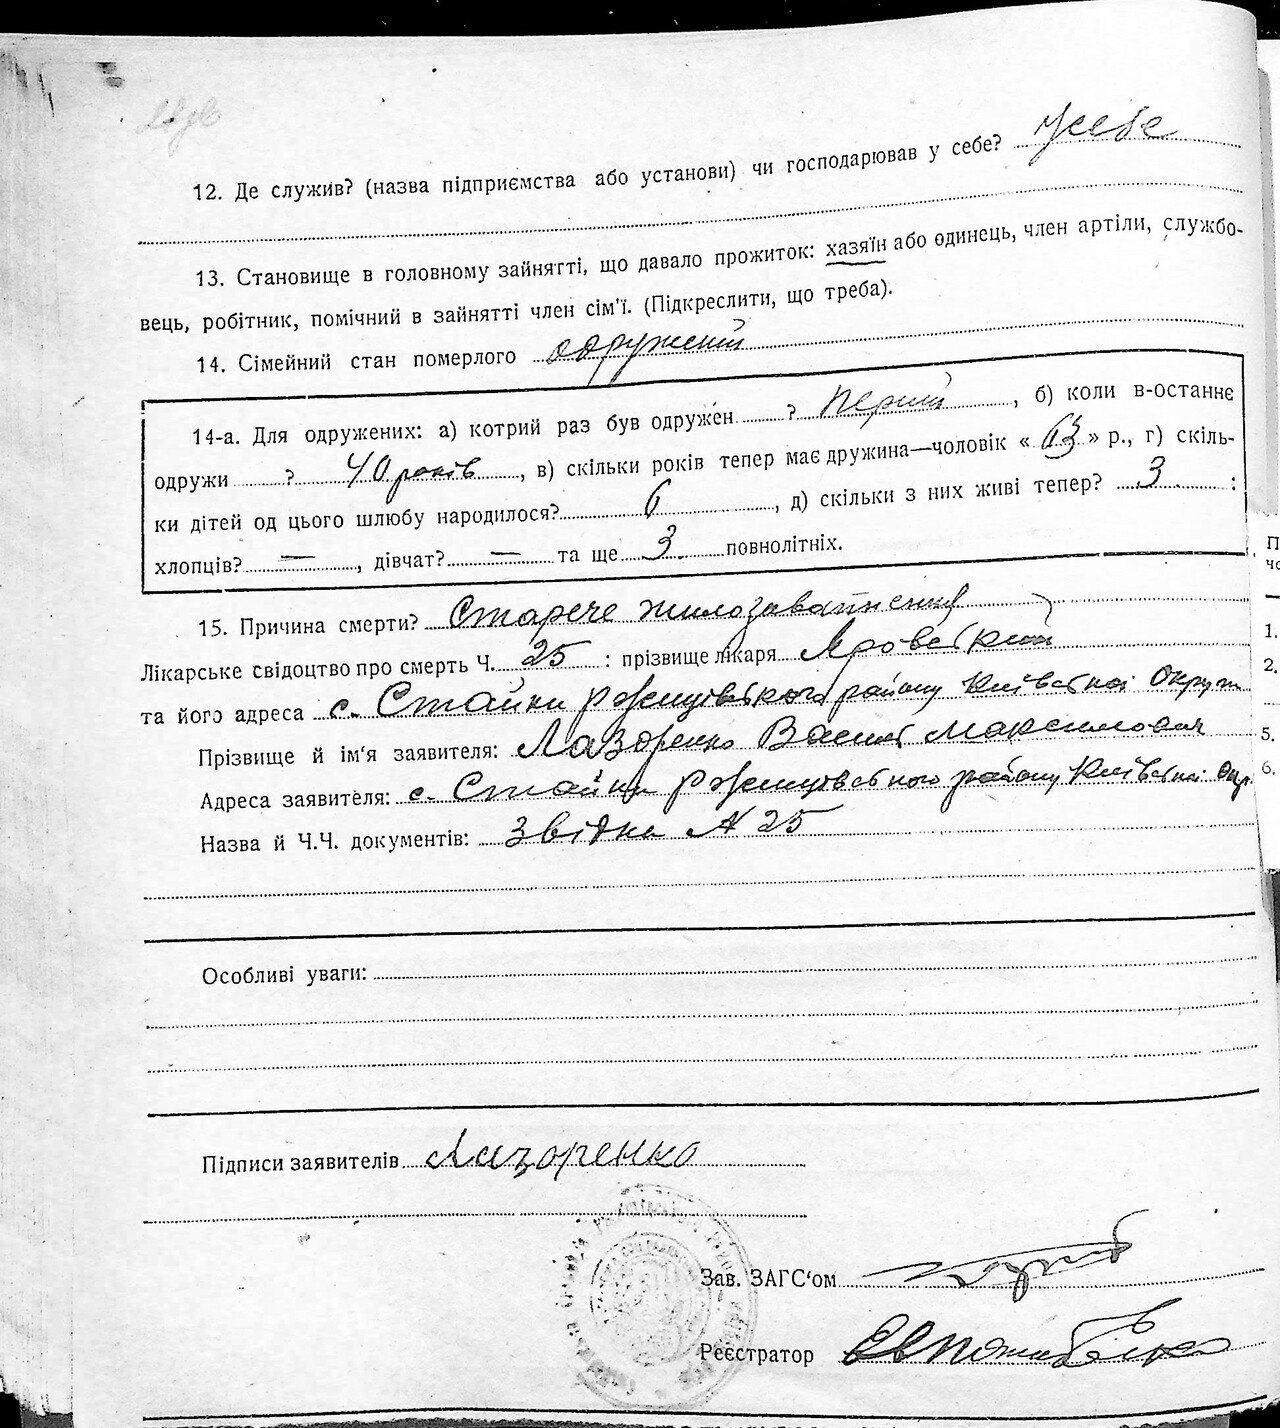 12. Де служив? (назва підприємства або установи) чи господарював у себе? У себе
13. Становище в головному зайнятті, що давало прожиток: хазяїн або одинець, член артіли, службо-
вець, робітник, помічний в зайнятті член сім'ї. (Підкреслити, що треба).
14. Сімейний стан померлого одружений
14-а. Для одружених: а) котрий раз був одружен ? перший, б) коли в-останнє
одружи ? 40 років, в) скільки років тепер має дружина—чоловік « 63 » р., г) скіль-
ки дітей од цього шлюбу народилося? 6, д) скільки з них живі тепер? 3 :
хлопців? —, дівчат? — та ще 3 повнолітніх.
15. Причина смерти? Старече жилозавапнення
Лікарське свідоцтво про смерть Ч. 25 : прізвище лікаря
та його адреса с. Стайки Ржищівського району Київської Округи
Прізвище й ім'я заявителя: Лазоренко Василь Максимович
Адреса заявителя: с. Стайки Ржищівського району Київської Окр.
Назва й Ч.Ч. документів: Звідка № 25
Особливі уваги:
Підписи заявителів Лазоренко
Зав. ЗАГС'ом
Реєстратор
П
1.
2.
5.
6.